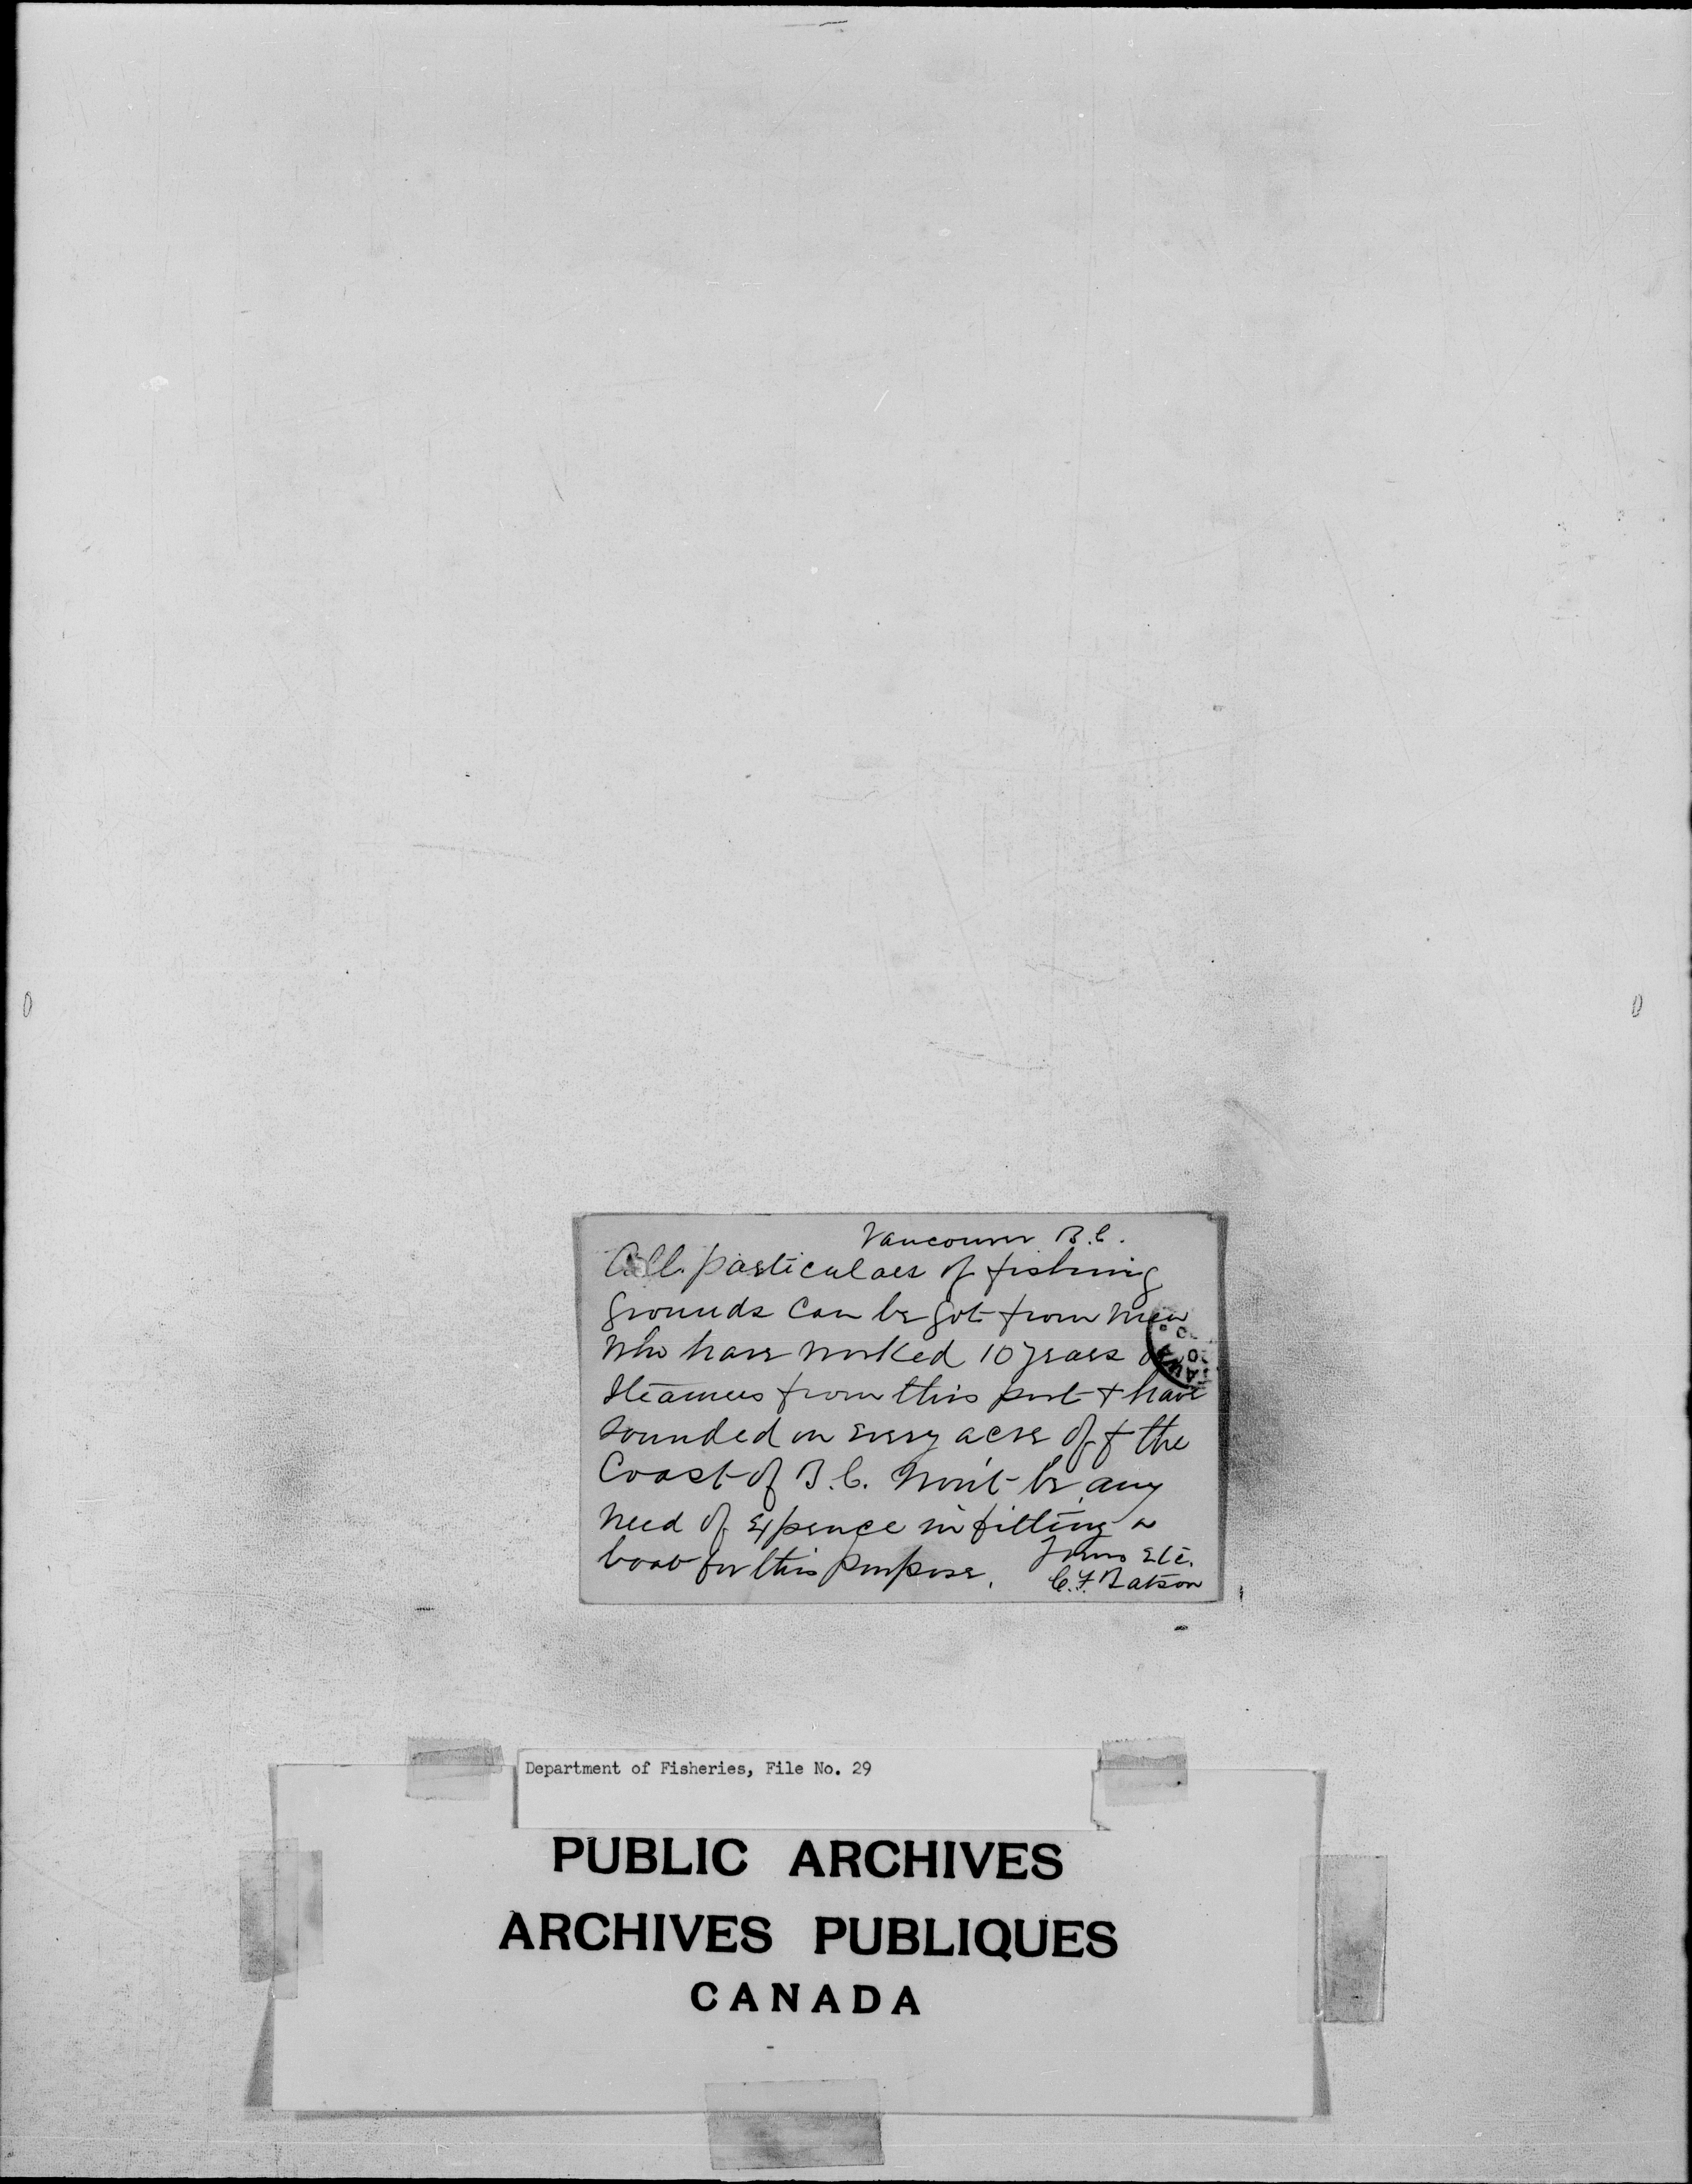 Vancouver B.C.
All particulars of fishing
grounds can be got from men
who have worked 10 years on
steamers from this port & have
sounded on every acre off the
Coast of B.C. Won't be any
need of expence in fitting a
boat for this purpose. Yours Etc.
C.F. Batson
Department of Fisheries, File No. 29
PUBLIC ARCHIVES
ARCHIVES PUBLIQUES
CANADA